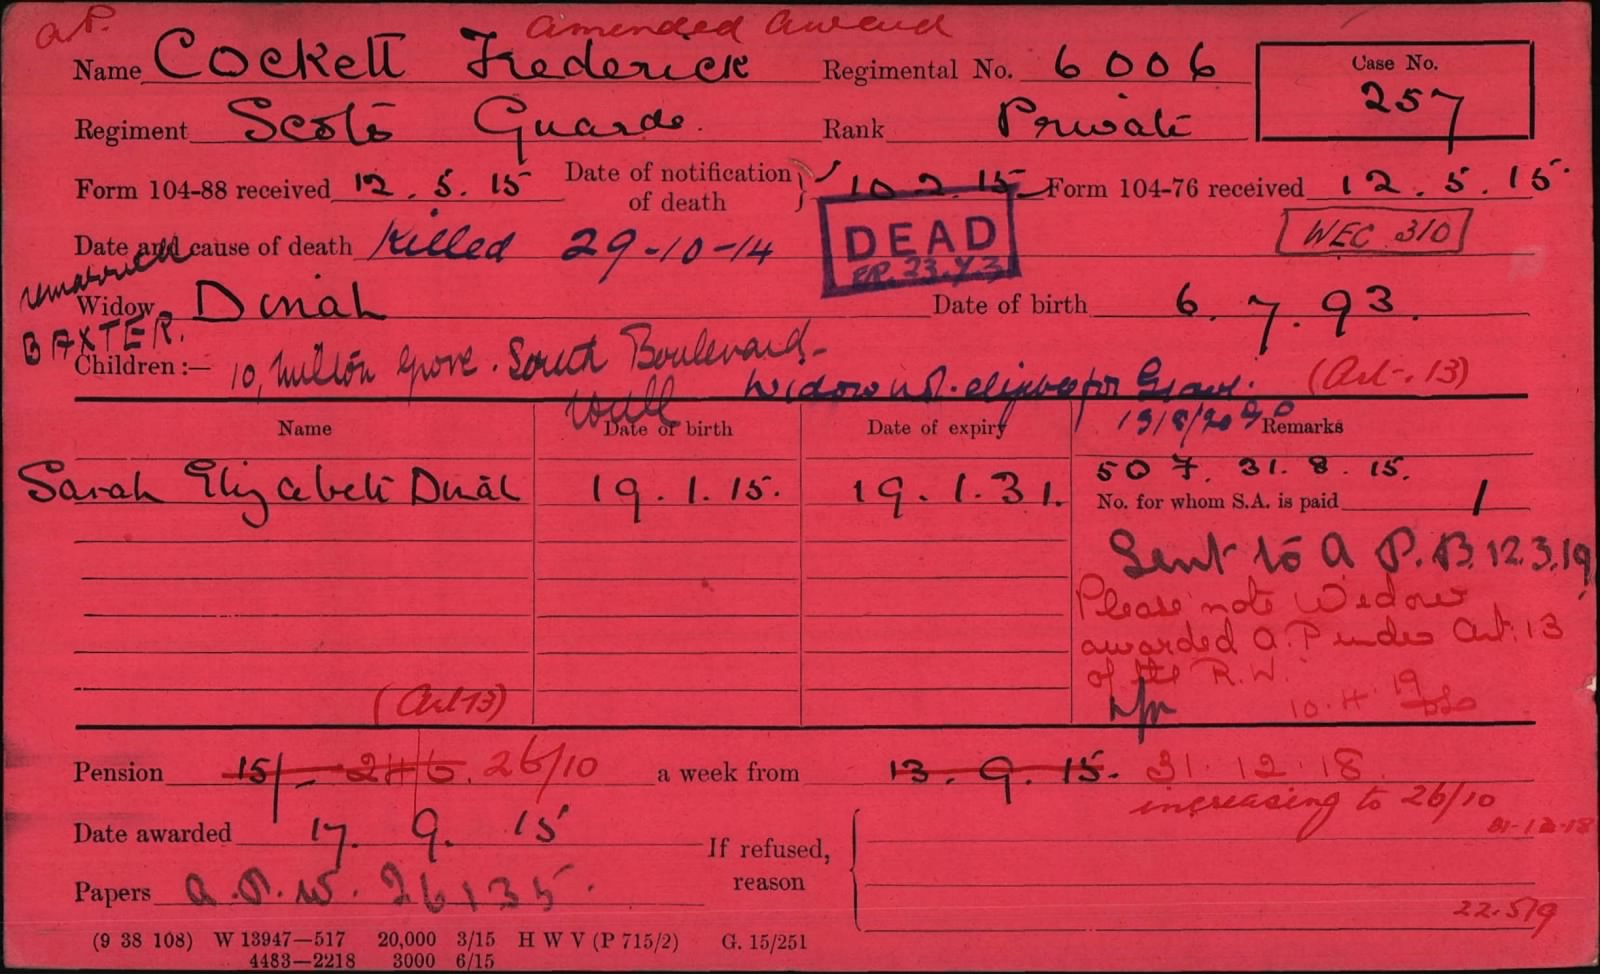 a.P. Amended Award
Name Cockett Frederick Regimental No. 6006 Case No.
257
Regiment Scots Guards. Rank Private
Form 104-88 received 12.5.15 Date of notification of death 10.2.15 Form 104-76 received 12.5.15
DEAD WEC 310
Date and cause of death Killed 29-10-14
remarried
Widow Dinah Date of birth 6.7.93.
BAXTER.
Children:— 10, Milton Grove. South Boulevard-
Hull Widow not eligible for Grant. (Art. 13)
19/8/20
Name Date of birth Date of expiry Remarks
507. 31.8.15.
Sarah Elizabeth Dinah 19.1.15. 19.1.31. No. for whom S.A. is paid 1
Sent to A.P.B. 12.3.19
Please note Widow
awarded A.P under Art. 13
of the R.W.
(Art 13)
Pension 15/- 26/10 a week from 13.9.15. 31.12.18.
increasing to 26/10
31-12-18
Date awarded 17.9.15 If refused,
reason
Papers a.P.W. 26135.
22.5/9
(9 38 108) W 13947—517 20,000 3/15 H W V (P 715/2) G. 15/251
4483—2218 3000 6/15